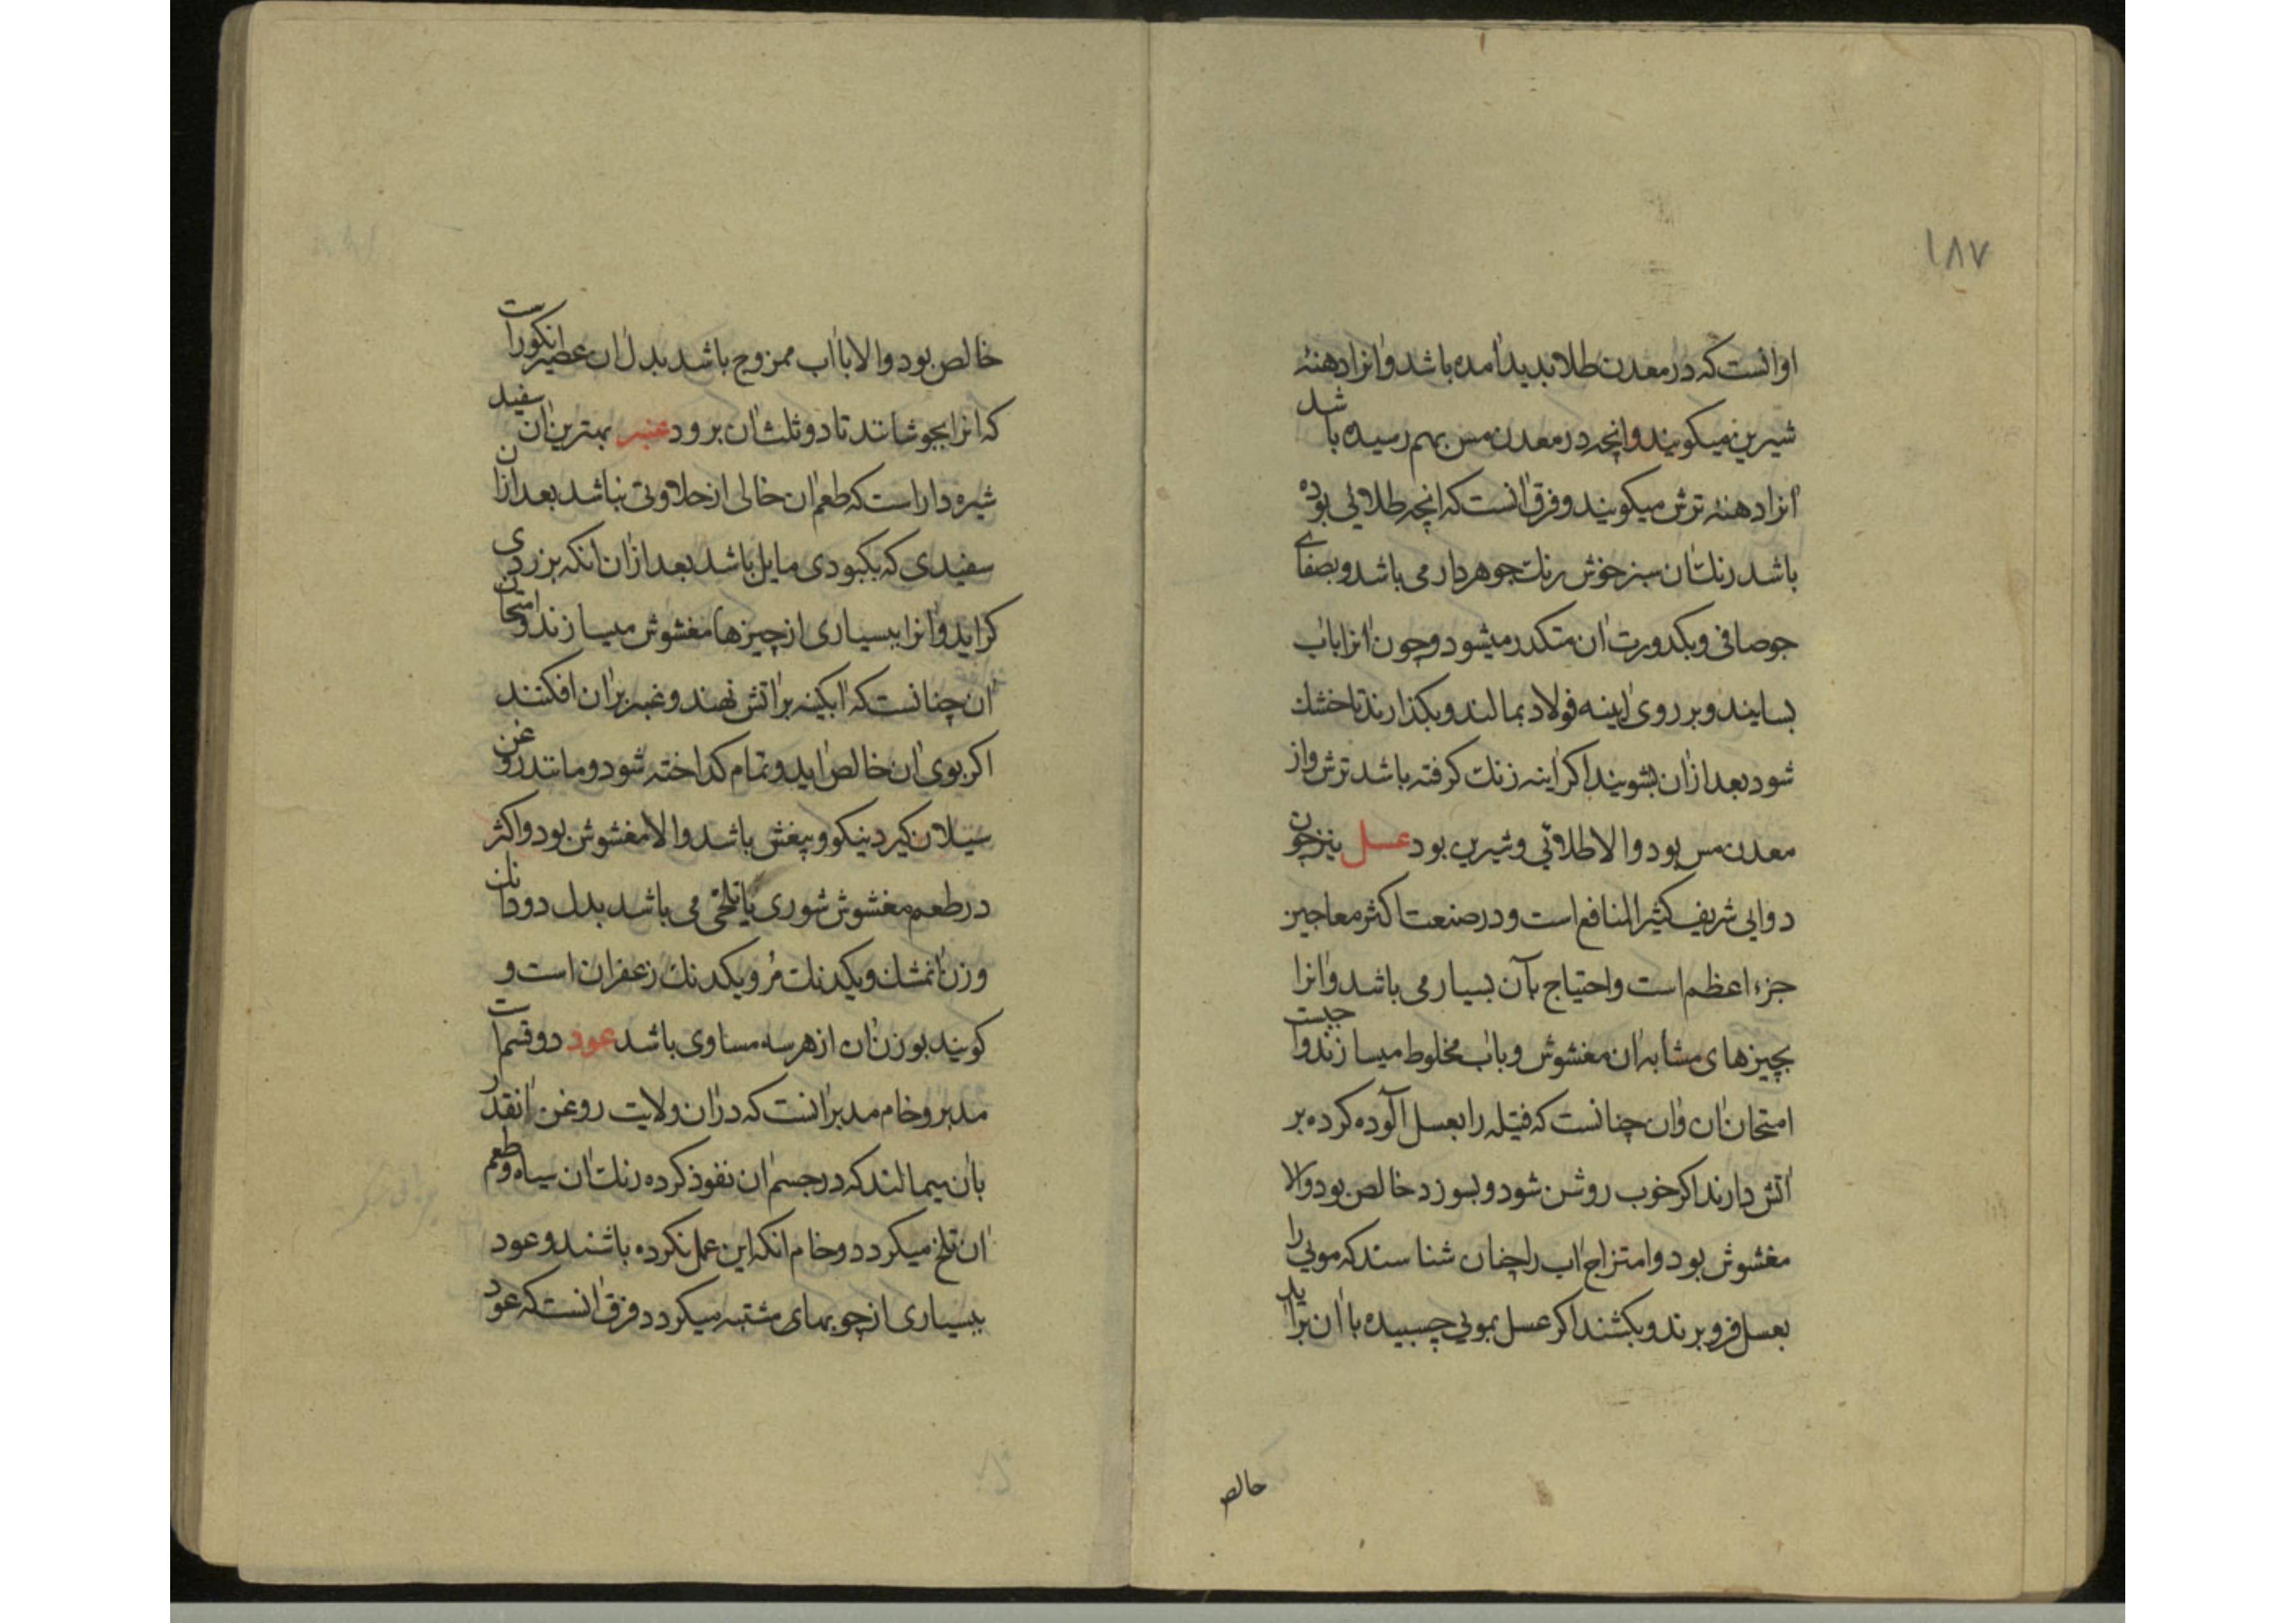 ۱۸۷
اوانست که در معدن طلا بدید آمده باشد و انرا دهنهٔ
شیرین میکویند و انچه در معدن مس بهم رسیده باشد
انرا دهنهٔ ترش میکویند و فرق انست که انچه طلائی بوده
باشد رنك ان سبز خوش رنك جوهر دار می باشد و بصفای
جو صافی و بکدورت ان متکدر میشود و چون انرا باب
بسایند و بر روی اینه فولاد بمالند و بکذارند تا خشك
شود بعد ازان بشویند اکر اینه زنك کرفته باشد ترش واز
معدن مس بود والا طلائی و شیرین بود عسل نیز چون
دوایی شریف کثیر المنافع است و در صنعت اکثر معاجین
جزء اعظم است و احتیاج بآن بسیار می باشد و انرا
بچیزهای مشابه ان مغشوش و باب مخلوط میسازند واجبست
امتحان ان وان چنانست که فتیله را بعسل آلوده کرده بر
اتش دارند اکر خوب روشن شود و بسوزد خالص بود والا
مغشوش بود و امتزاج اب را چنان شناسند که مویی را
بعسل فرو برند و بکشند اکر عسل بمویی چسبیده با ان براید
خالص
خالص بود والا با اب ممزوج باشد بدل ان عصیر انکور است
که انرا بجوشانند تا دو ثلث ان برود عنبر بهترین ان سفید
شیره دار است که طعم ان خالی از حلاوتی نباشد بعد ازان
سفیدی که بکبودی مایل باشد بعد ازان انکه بزردی
کراید و انرا ببسیاری از چیزها مغشوش میسازند و امتحان
ان چنانست که ابکینه بر اتش نهند و عنبر بران افکنند
اکر بوی ان خالص اید و تمام کداخته شود و مانند روغن
سیلان کیرد نیکو و بیغش باشد والا مغشوش بود و اکثر
در طعم مغشوش شوری یا تلخی می باشد بدل دو دانك
وزن ان مشك و یکدنك مُر و یکدنك زعفران است و
کویند بوزن ان از هر سه مساوی باشد عود دو قسم است
مدبر و خام مدبر انست که دران ولایت روغن انقدر
بان بیمالند که در جسم ان نفوذ کرده رنك ان سیاه و طعم
ان تلخ میکردد و خام انکه این عمل نکرده باشند و عود
ببسیاری از چوبهای مشتبه میکردد فرق انست که عود